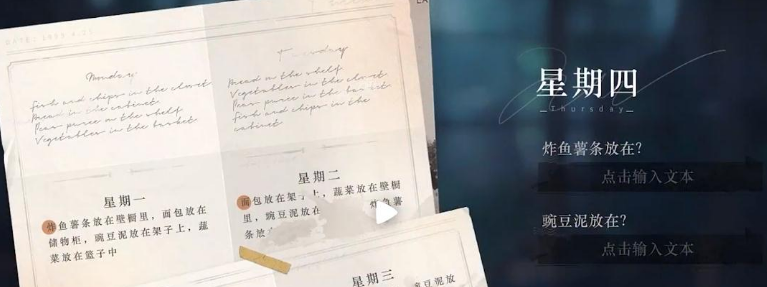 Monday
fish and chips in the closet
Bread in the cabinet
Peas puree on the shelf
Vegetables in the basket
Tuesday
Bread on the shelf
Vegetables in the closet
Peas puree in the basket
fish and chips in the
cabinet
星期一
炸鱼薯条放在壁橱里，面包放在
储物柜，豌豆泥放在架子上，蔬
菜放在篮子中
星期二
面包放在架子上，蔬菜放在壁橱
里，豌豆泥放在 炸鱼薯
条放
星期三
豌豆泥放
星期四
Thursday
炸鱼薯条放在？
点击输入文本
豌豆泥放在？
点击输入文本